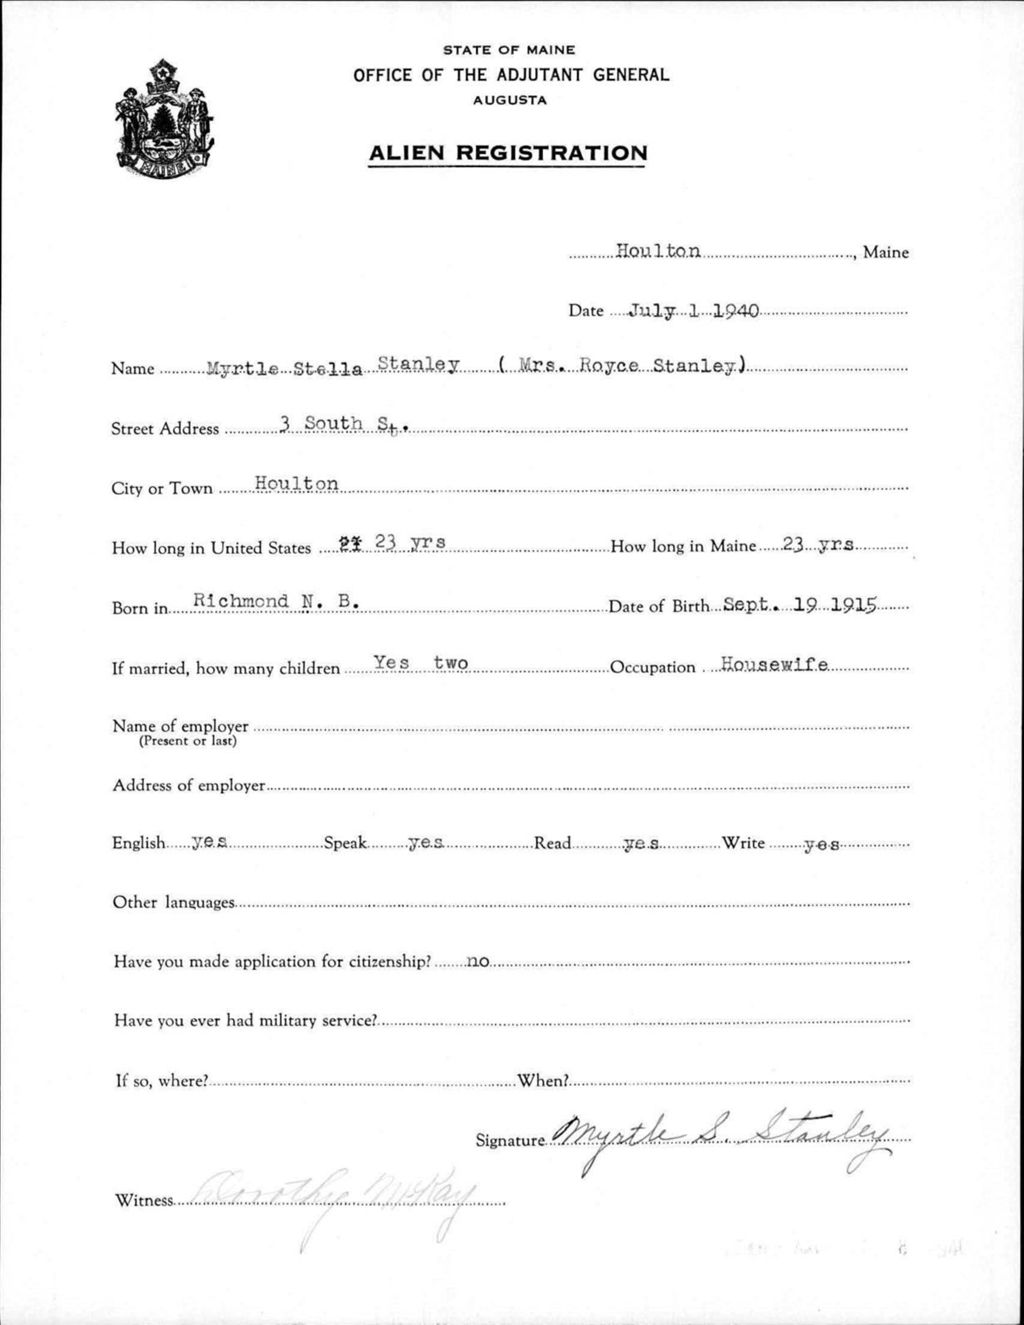 STATE OF MAINE
OFFICE OF THE ADJUTANT GENERAL
AUGUSTA
ALIEN REGISTRATION
MAINE
Houlton, Maine
Date July 1 1940
Name Myrtle Stella Stanley ( Mrs. Royce Stanley)
Street Address 3 South St.
City or Town Houlton
How long in United States 23 yrs How long in Maine 23 yrs
Born in Richmond N. B. Date of Birth Sept. 19 1915
If married, how many children Yes two Occupation Housewife
Name of employer
(Present or last)
Address of employer
English yes Speak yes Read yes Write yes
Other languages
Have you made application for citizenship? no
Have you ever had military service?
If so, where? When?
Signature Myrtle S. Stanley
Witness Dorothy McKay